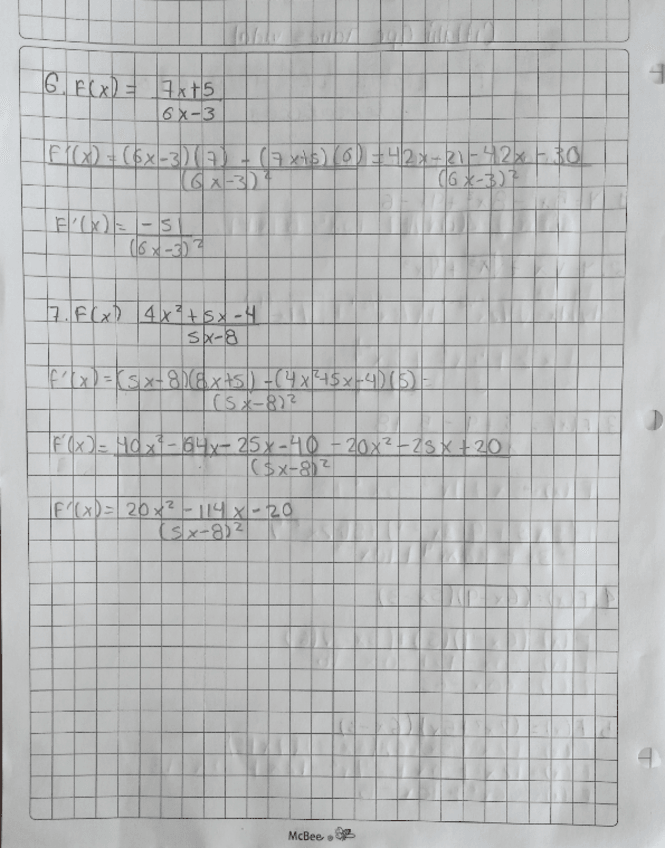 6. F(x) = 7x+5
6x-3
F'(x) = (6x-3)(7) - (7x+5)(6) = 42x-21-42x-30
(6x-3)² (6x-3)²
F'(x) = -51
(6x-3)²
7. F(x) 4x²+5x-4
5x-8
F'(x) = (5x-8)(8x+5) - (4x²+5x-4)(5) =
(5x-8)²
F'(x) = 40x²-64x-25x-40-20x²-25x+20
(5x-8)²
F'(x) = 20x²-114x-20
(5x-8)²
McBee